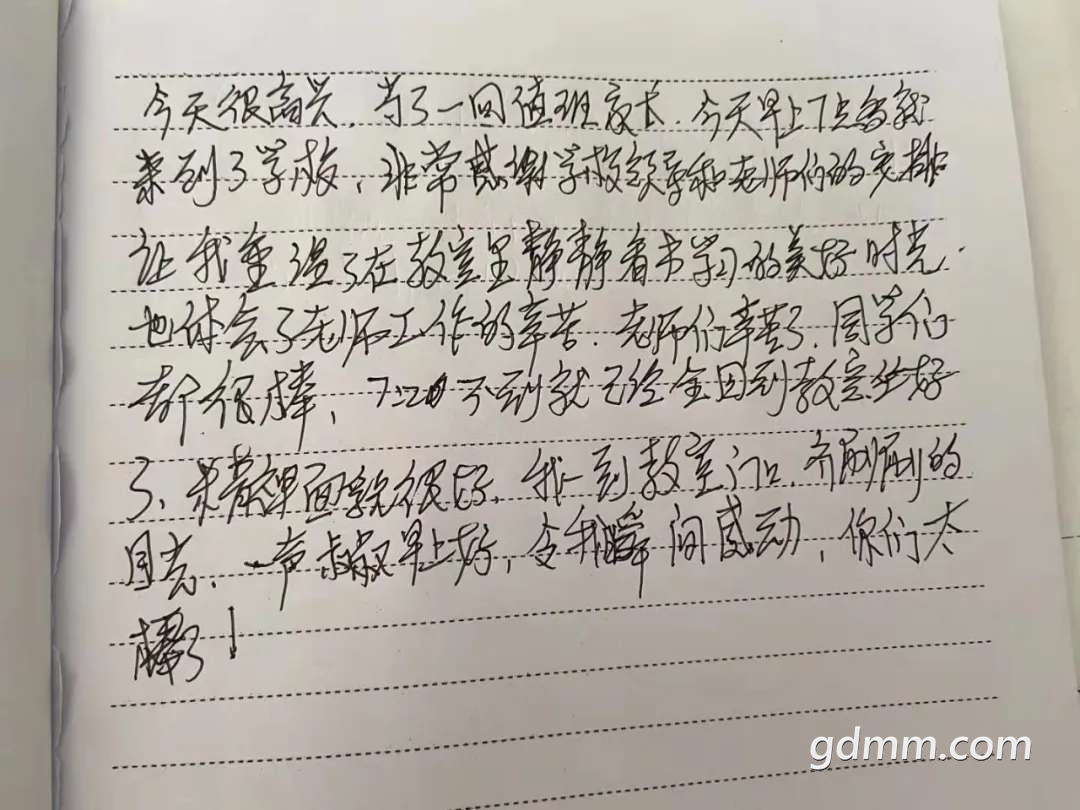 今天很高兴，当了一回值班家长，今天早上7点多就
来到了学校，非常感谢学校领导和老师们的安排
让我重温了在教室里静静看书学习的美好时光.
也体会了老师工作的辛苦.老师们辛苦了，同学们
都很棒，7:20不到就已经全回到教室坐好
了、很好，我一到教室门口，齐刷刷的
目光，一声叔叔早上好，令我瞬间感动，你们太
棒了！
gdmm.com